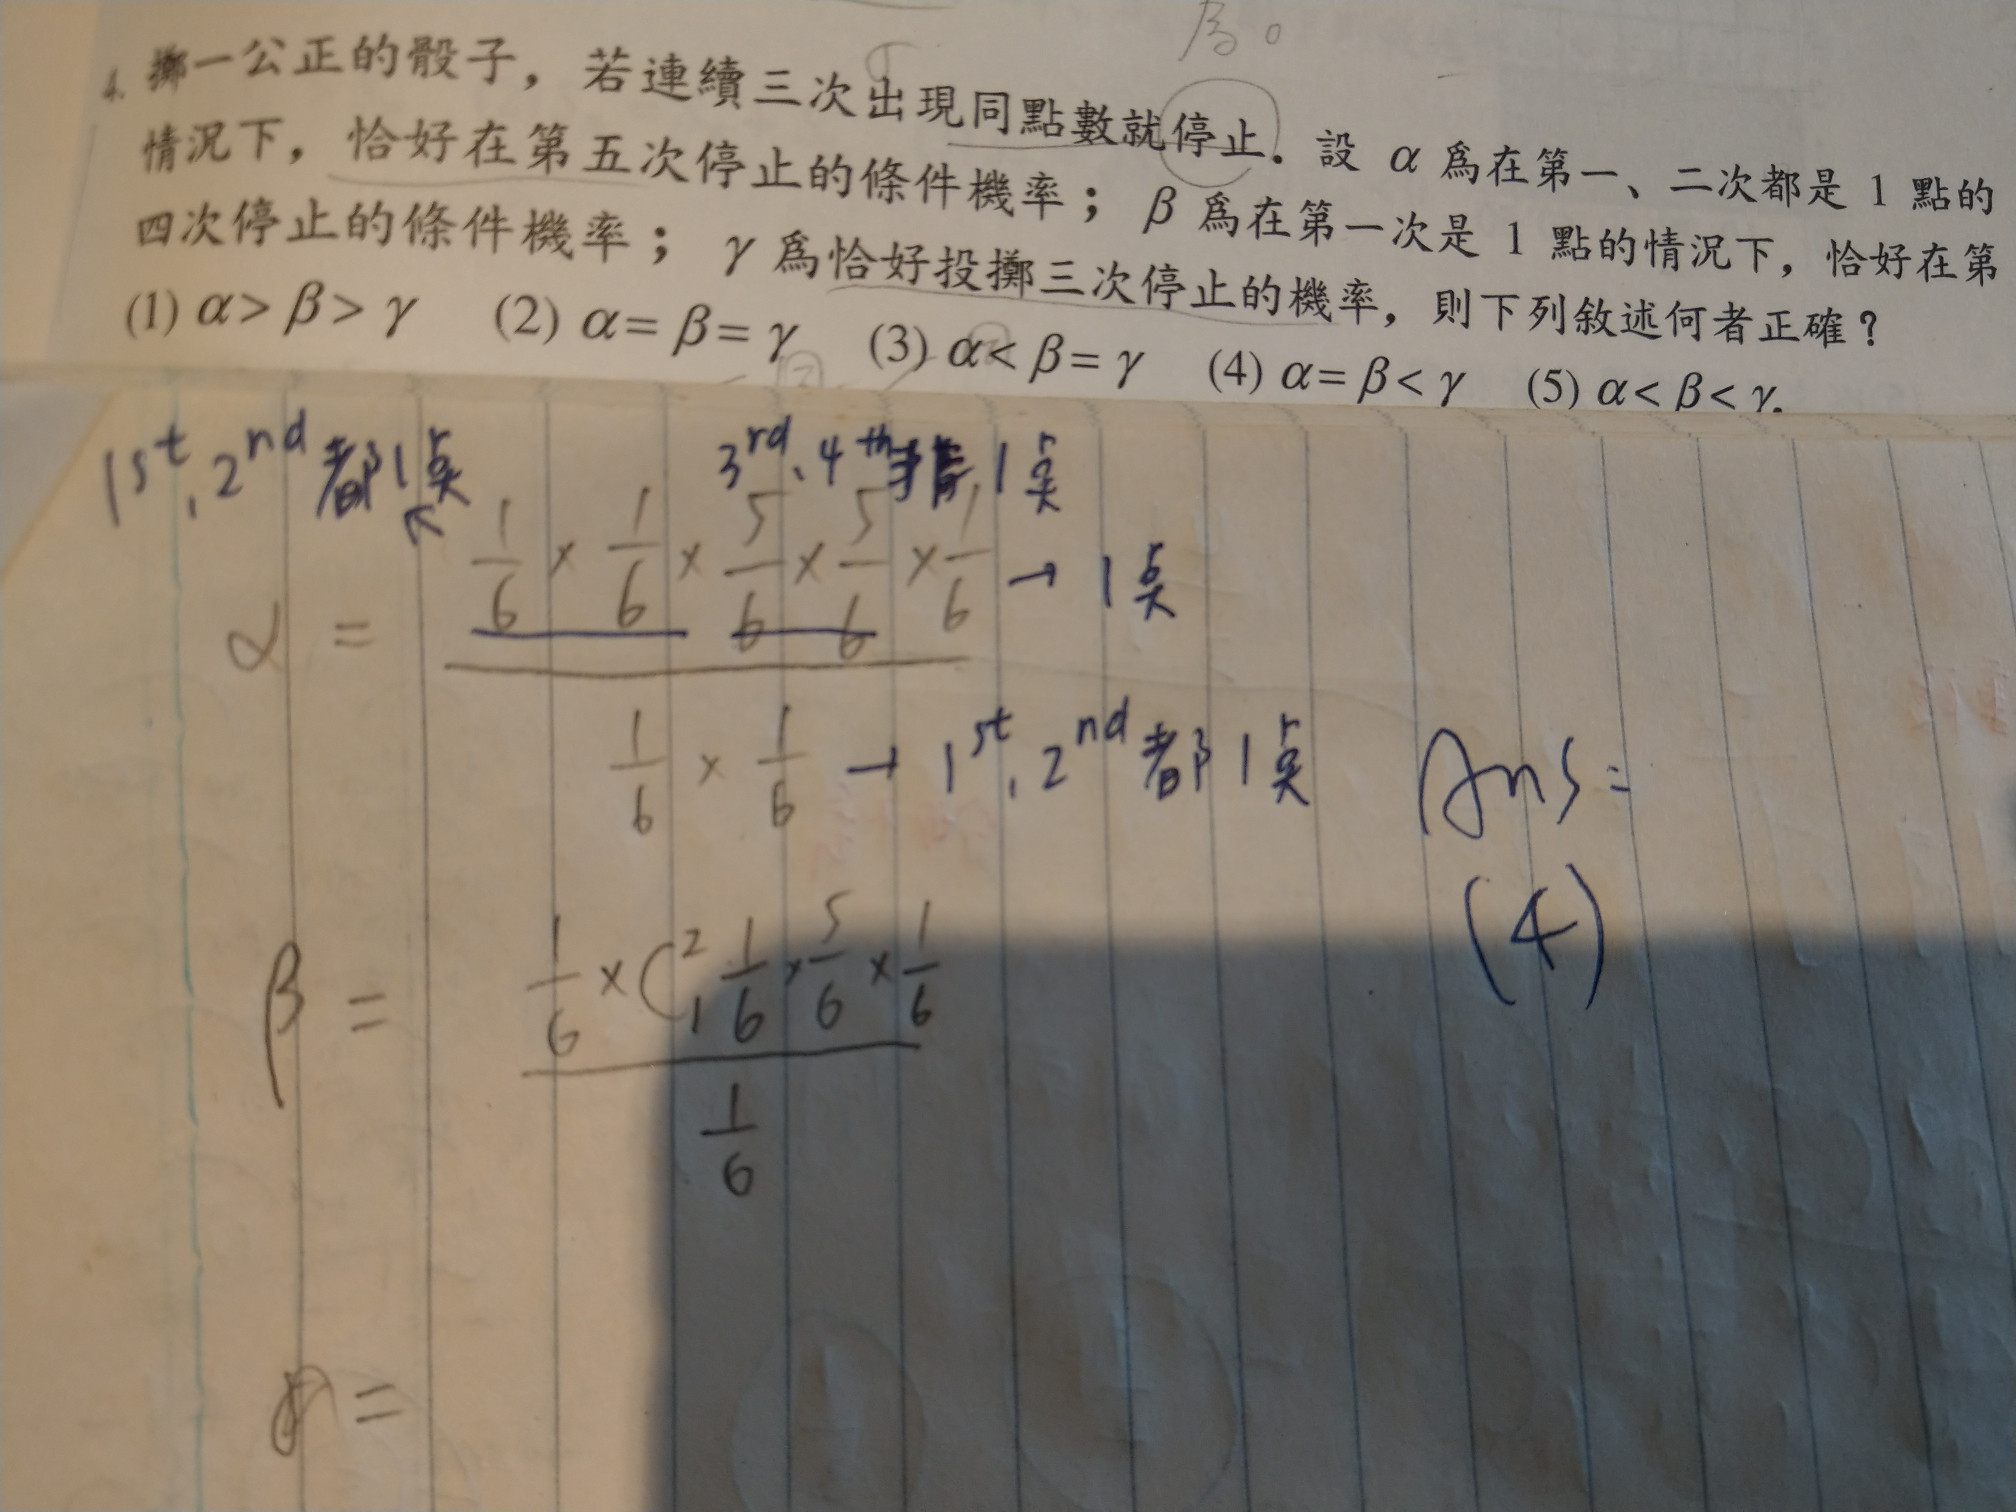 為。
4. 擲一公正的骰子，若連續三次出現同點數就停止．設 α 為在第一、二次都是 1 點的
情況下，恰好在第五次停止的條件機率；β 為在第一次是 1 點的情況下，恰好在第
四次停止的條件機率；γ 為恰好投擲三次停止的機率，則下列敘述何者正確？
(1) α > β > γ (2) α = β = γ (3) α < β = γ (4) α = β < γ (5) α < β < γ.
1st, 2nd 都1点 3rd、4th 1点
1/6 × 1/6 × 5/6 × 5/6 × 1/6 → 1点
α =
1/6 × 1/6 → 1st, 2nd 都1点
Ans =
(4)
1/6 × C²₁ 1/6 × 5/6 × 1/6
β =
1/6
γ =